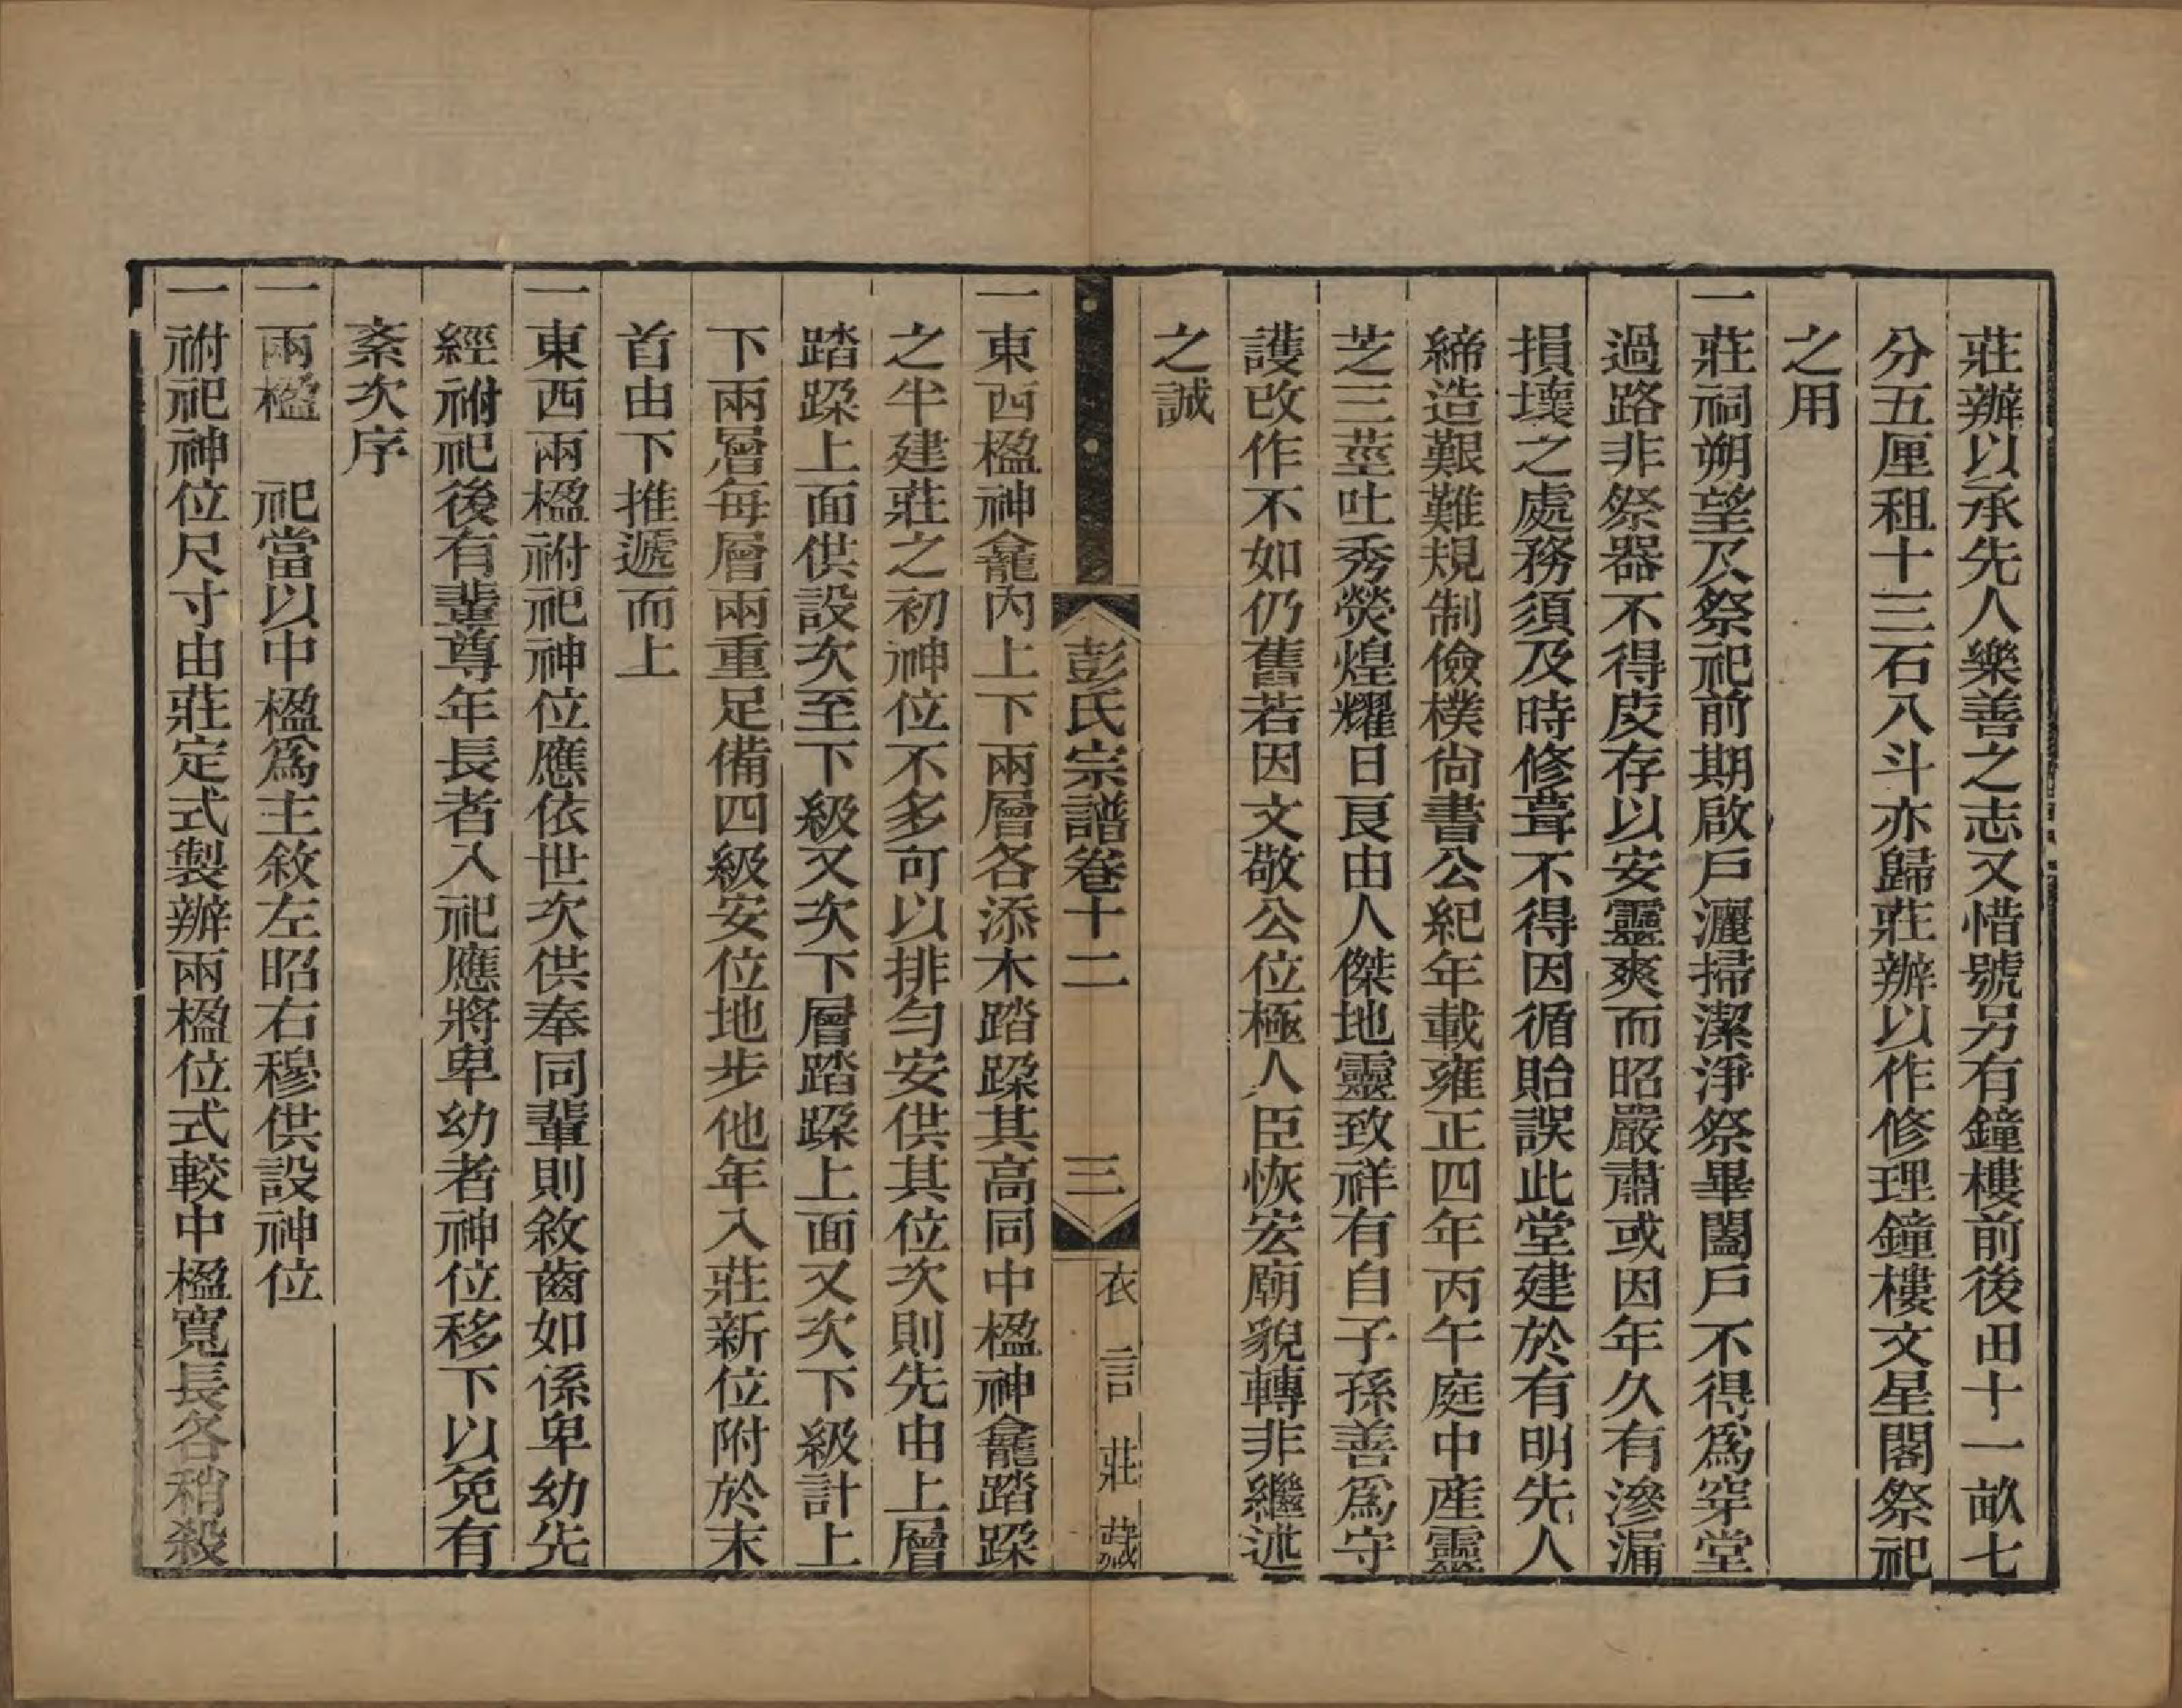 莊辦以承先人樂善之志又惜號另有鐘樓前後田十一畝七
分五厘租十三石八斗亦歸莊辦以作修理鐘樓文星閣祭祀
之用
一莊祠朔望及祭祀前期啟戶灑掃潔淨祭畢闔戶不得爲穿堂
過路非祭器不得庋存以安靈爽而昭嚴肅或因年久有滲漏
損壞之處務須及時修葺不得因循貽誤此堂建於有明先人
締造艱難規制儉樸尙書公紀年載雍正四年丙午庭中產靈
芝三莖吐秀熒煌耀日良由人傑地靈致祥有自子孫善爲守
護改作不如仍舊若因文敬公位極人臣恢宏廟貌轉非繼述
之誠
彭氏宗譜卷十二 三 衣言莊藏
一東西楹神龕內上下兩層各添木踏跺其高同中楹神龕踏跺
之半建莊之初神位不多可以排勻安供其位次則先由上層
踏跺上面供設次至下級又次下層踏跺上面又次下級計上
下兩層每層兩重足備四級安位地步他年入莊新位附於末
首由下推遞而上
一東西兩楹祔祀神位應依世次供奉同輩則敘齒如係卑幼先
經祔祀後有輩尊年長者入祀應將卑幼者神位移下以免有
紊次序
一兩楹 祀當以中楹爲主敘左昭右穆供設神位
一祔祀神位尺寸由莊定式製辦兩楹位式較中楹寬長各稍殺